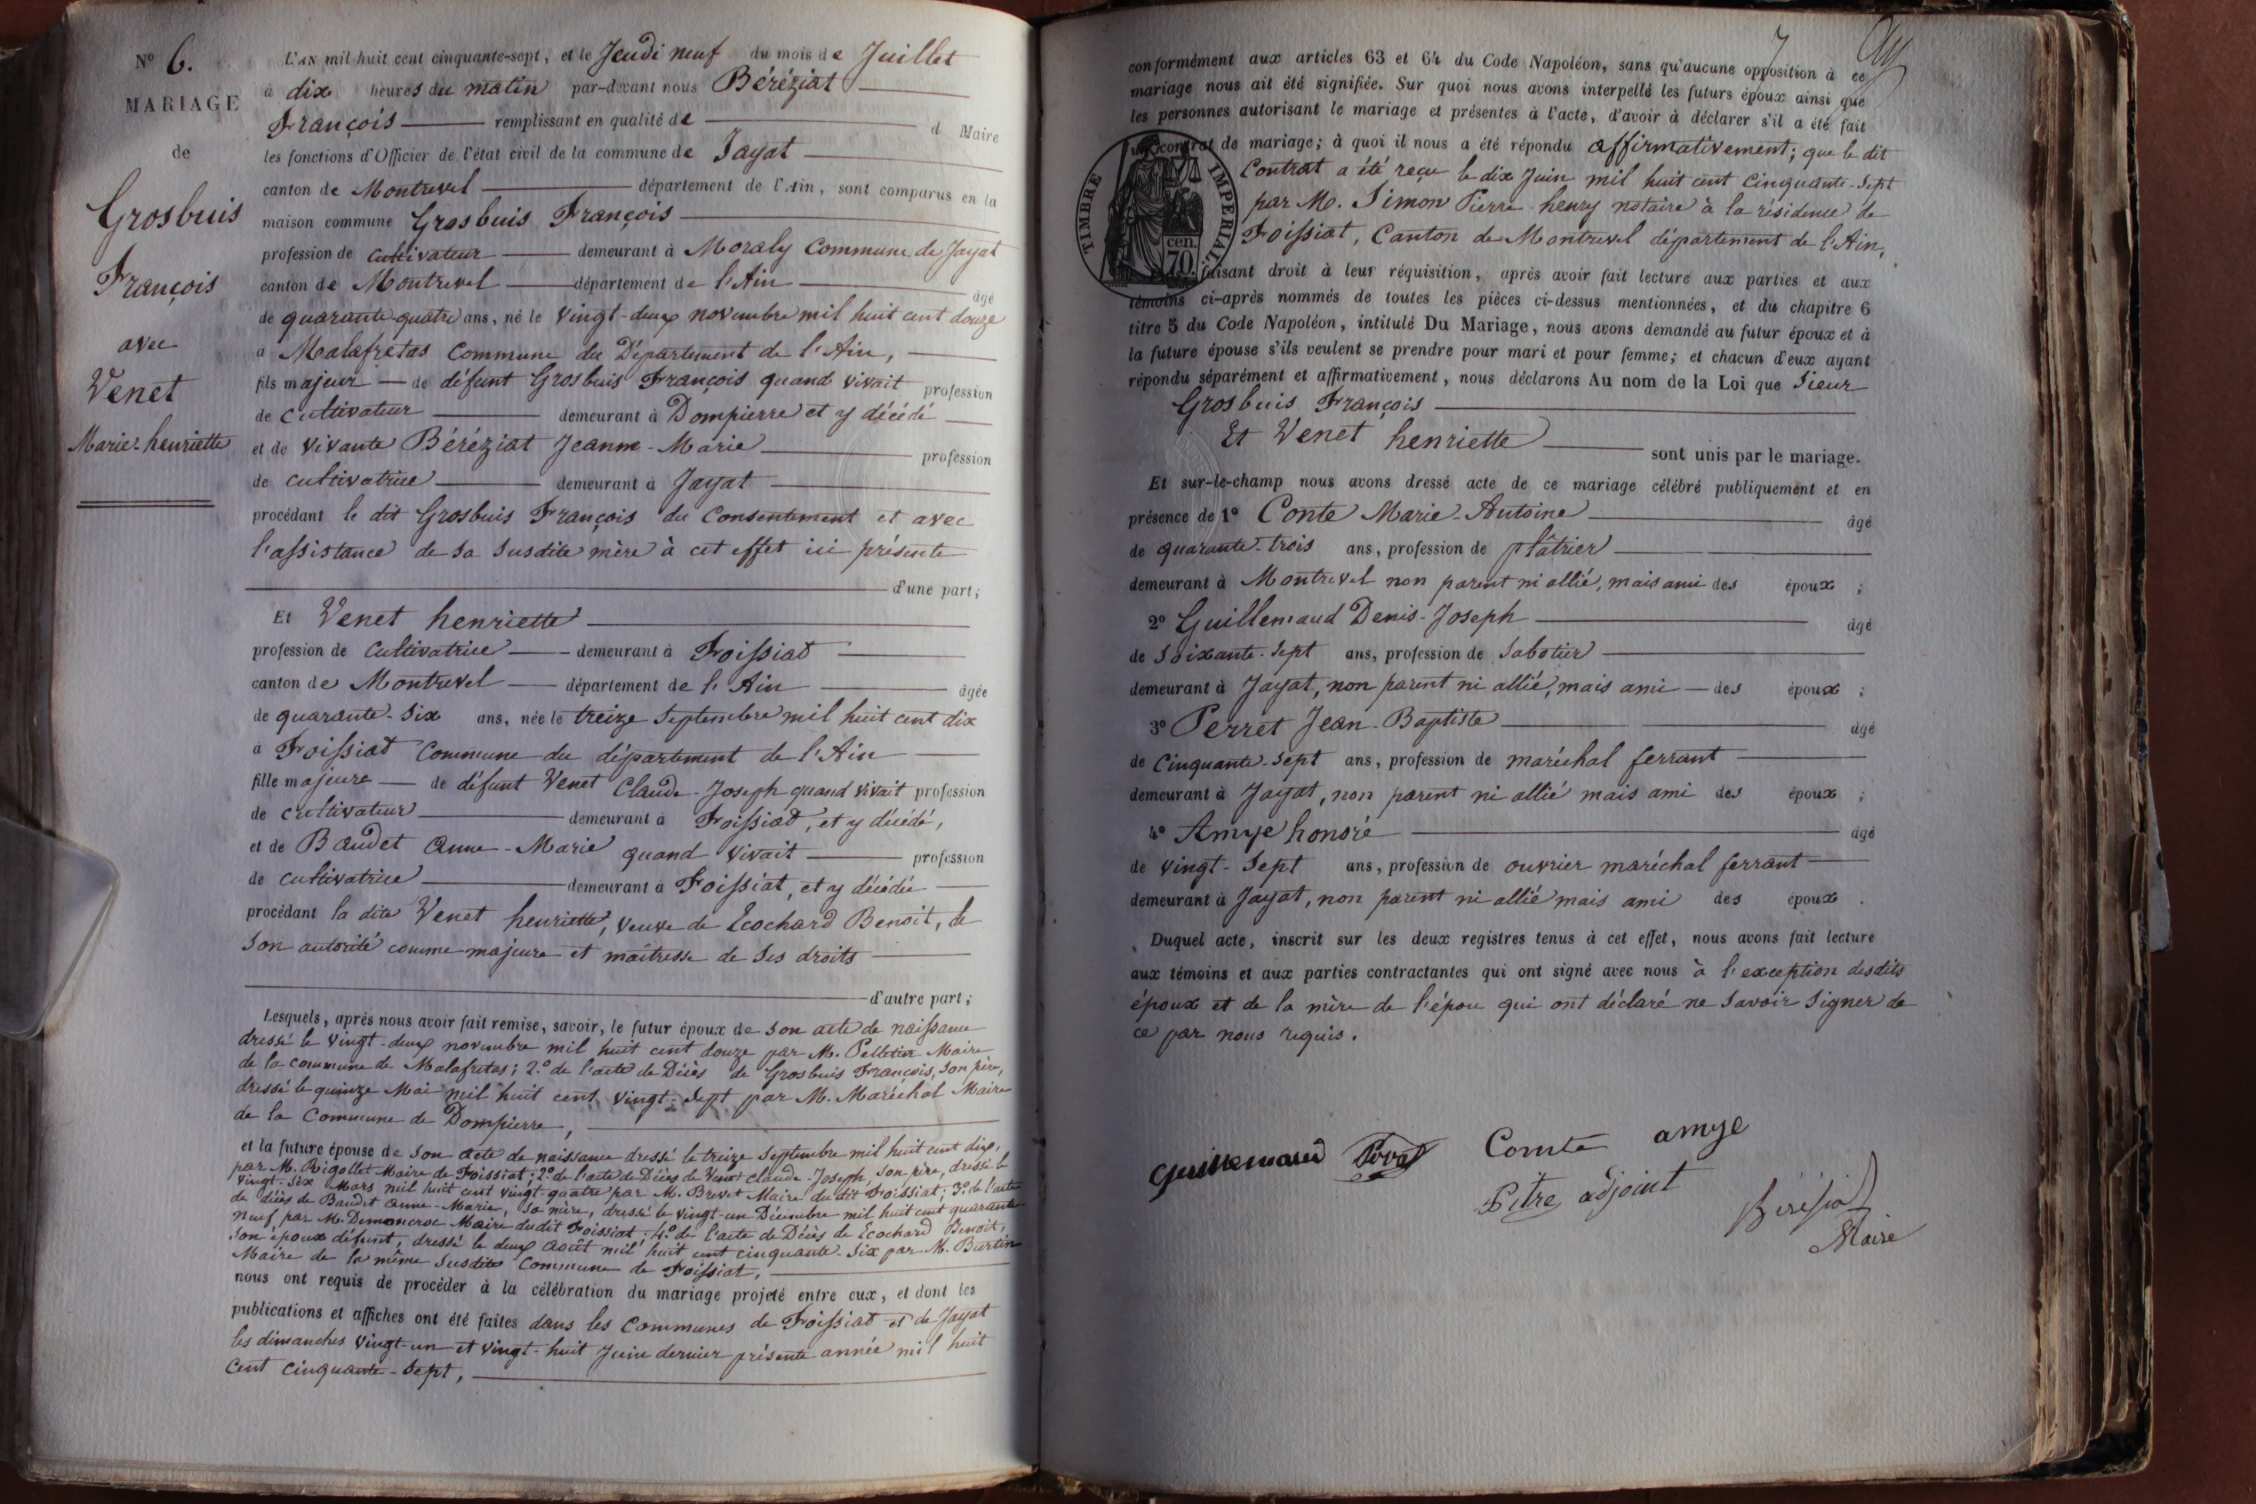 N° 6.
MARIAGE
de
Grosbuis
François
avec
Venet
Marie-henriette
L'AN mil huit cent cinquante-sept, et le Jeudi neuf du mois de Juillet
à dix heures du matin par-devant nous Béréziat
François remplissant en qualité de d Maire
les fonctions d'Officier de l'état civil de la commune de Jayat
canton de Montrevel département de l'Ain, sont comparus en la
maison commune Grosbuis François
profession de cultivateur demeurant à Moraly Commune de Jayat
canton de Montrevel département de l'Ain âgé
de quarante-quatre ans, né le vingt-deux novembre mil huit cent douze
à Malafrétas Commune du Département de l'Ain,
fils majeur de défunt Grosbuis François quand vivait profession
de cultivateur demeurant à Dompierre et y décédé
et de vivante Béréziat Jeanne-Marie profession
de cultivatrice demeurant à Jayat
procédant le dit Grosbuis François du Consentement et avec
l'assistance de sa susdite mère à cet effet ici présente
d'une part;
Et Venet henriette
profession de cultivatrice demeurant à Foissiat
canton de Montrevel département de l'Ain âgée
de quarante-six ans, née le treize septembre mil huit cent dix
à Foissiat Commune du département de l'Ain
fille majeure de défunt Venet Claude-Joseph quand vivait profession
de cultivateur demeurant à Foissiat, et y décédé,
et de Baudet Anne-Marie quand vivait profession
de cultivatrice demeurant à Foissiat, et y décédée
procédant la dite Venet henriette, veuve de Ecochard Benoit, de
son autorité comme majeure et maîtresse de ses droits
d'autre part;
Lesquels, après nous avoir fait remise, savoir, le futur époux de son acte de naissance
dressé le vingt-deux novembre mil huit cent douze par M. Pelletier Maire
de la commune de Malafretas; 2.° de l'acte de Décès de Grosbuis François, son père,
dressé le quinze Mai mil huit cent vingt-sept par M. Maréchal Maire
de la Commune de Dompierre,
et la future épouse de son acte de naissance dressé le treize septembre mil huit cent dix,
par M. Rigollet Maire de Foissiat; 2.° de l'acte de Décès de Venet Claude-Joseph, son père, dressé le
vingt-six Mars mil huit cent vingt-quatre par M. Brevet Maire du dit Foissiat; 3.° de l'acte
de décès de Baudet Anne-Marie, sa mère, dressé le vingt-un Décembre mil huit cent quarante-
neuf, par M. Demoncroc Maire dudit Foissiat; 4.° de l'acte de Décès de Ecochard Benoit,
son époux défunt, dressé le deux Août mil huit cent cinquante-six par M. Burtin
Maire de la même susdite Commune de Foissiat,
nous ont requis de procéder à la célébration du mariage projeté entre eux, et dont les
publications et affiches ont été faites dans les Communes de Foissiat et de Jayat
les dimanches vingt-un et vingt-huit Juin dernier présente année mil huit
cent cinquante-sept,
7
conformément aux articles 63 et 64 du Code Napoléon, sans qu'aucune opposition à ce
mariage nous ait été signifiée. Sur quoi nous avons interpellé les futurs époux ainsi que
les personnes autorisant le mariage et présentes à l'acte, d'avoir à déclarer s'il a été fait
un contrat de mariage; à quoi il nous a été répondu affirmativement; que le dit
Contrat a été reçu le dix Juin mil huit cent cinquante-sept
par M. Simon Pierre-henry notaire à la résidence de
Foissiat, Canton de Montrevel département de l'Ain,
TIMBRE IMPERIAL
70 cen.
faisant droit à leur réquisition, après avoir fait lecture aux parties et aux
témoins ci-après nommés de toutes les pièces ci-dessus mentionnées, et du chapitre 6
titre 5 du Code Napoléon, intitulé Du Mariage, nous avons demandé au futur époux et à
la future épouse s'ils veulent se prendre pour mari et pour femme; et chacun d'eux ayant
répondu séparément et affirmativement, nous déclarons Au nom de la Loi que Sieur
Grosbuis François
Et Venet henriette
sont unis par le mariage.
Et sur-le-champ nous avons dressé acte de ce mariage célébré publiquement et en
présence de 1° Conte Marie-Antoine âgé
de quarante-trois ans, profession de plâtrier
demeurant à Montrevel non parent ni allié, mais ami des époux ;
2° Guillemaud Denis-Joseph âgé
de soixante-sept ans, profession de Sabotier
demeurant à Jayat, non parent ni allié, mais ami des époux ;
3° Perret Jean-Baptiste âgé
de Cinquante-sept ans, profession de maréchal ferrant
demeurant à Jayat, non parent ni allié mais ami des époux ;
4° Amye honoré âgé
de vingt-sept ans, profession de ouvrier maréchal ferrant
demeurant à Jayat, non parent ni allié mais ami des époux .
Duquel acte, inscrit sur les deux registres tenus à cet effet, nous avons fait lecture
aux témoins et aux parties contractantes qui ont signé avec nous à l'exception desdits
époux et de la mère de l'épou qui ont déclaré ne savoir signer de
ce par nous requis.
Guillemaud Comte amye
Pitre adjoint
Maire